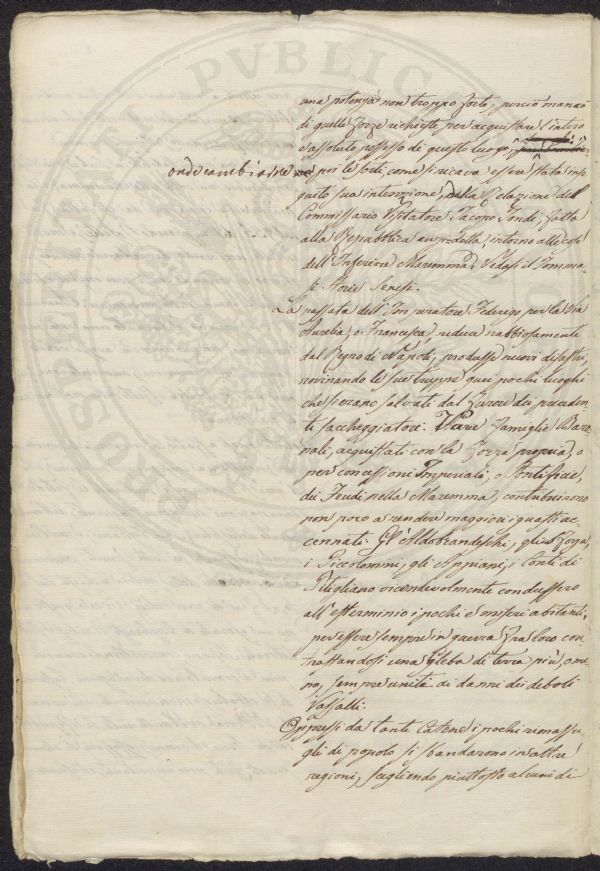 una potenza non troppo forte, perciò mancò
di quelle forze richieste per acquistare l'intero
e assoluto possesso di questo luogo,
onde cambiarne poi le sorti, come si ricava essere stata in se-
guito sua intenzione, dalla Relazione del
Commissario Visitatore Jacopo Tondi, fatta
alla Repubblica suddetta, intorno alle cose
dell'Inferiore Maremma. Vedasi il Tomma-
si storie Senesi.
La passata dell'Imperatore Federigo per la Via
Aurelia, o Francesca, reduce rabbiosamente
dal Regno di Napoli, produsse nuovi disastri,
rovinando le sue truppe quei pochi luoghi
che si erano salvati dal furore dei preceden-
ti saccheggiatori. Varie famiglie Baro-
nali, acquistati con la forza propria, o
per concessioni Imperiali, o Pontificie,
dei Feudi nella Maremma, contribuirono
non poco a rendere maggiori i guasti ac-
cennati. Gl'Aldobrandeschi, gli Sforza,
i Piccolomini, gli Appiani, i Conti di
Pitigliano vicendevolmente condussero
all'esterminio i pochi e miseri abitanti,
per essere sempre in guerra fra loro con-
trastandosi una Gleba di terra più, o me-
no, sempre uniti ai danni dei deboli
Vassalli.
Oppressi da tante Catene i pochi rimasu-
gli di popolo si sbandarono in altre
regioni, scegliendo piuttosto alcuni di
PVBLICA